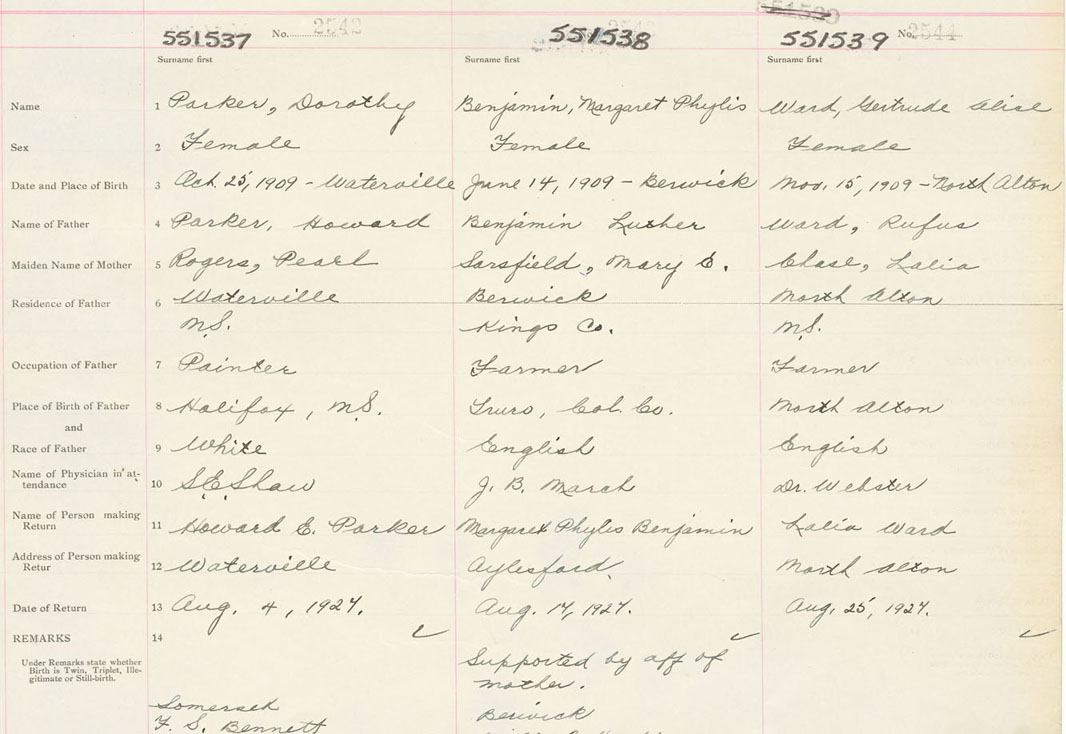 551539
551537 No. 2542 551538 2543 551539 No. 2544
Surname first Surname first Surname first
Name 1 Parker, Dorothy Benjamin, Margaret Phylis Ward, Gertrude Alice
Sex 2 Female Female Female
Date and Place of Birth 3 Oct. 25, 1909 - Waterville June 14, 1909 - Berwick Nov. 15, 1909 - North Alton
Name of Father 4 Parker, Howard Benjamin Luther Ward, Rufus
Maiden Name of Mother 5 Rogers, Pearl Sarsfield, Mary E. Chase, Lalia
Residence of Father 6 Waterville Berwick North Alton
N.S. Kings Co. N.S.
Occupation of Father 7 Painter Farmer Farmer
Place of Birth of Father 8 Halifax, N.S. Truro, Col. Co. North Alton
and
Race of Father 9 White English English
Name of Physician in at-
tendance 10 S.E. Shaw J. B. March Dr. Webster
Name of Person making
Return 11 Howard E. Parker Margaret Phylis Benjamin Lalia Ward
Address of Person making
Retur 12 Waterville Aylesford. North Alton
Date of Return 13 Aug. 4, 1927. Aug. 17, 1927. Aug. 25, 1927.
REMARKS 14
Under Remarks state whether
Birth is Twin, Triplet, Ille-
gitimate or Still-birth.
Supported by aff of
mother.
Somerset Berwick
F. S. Bennett